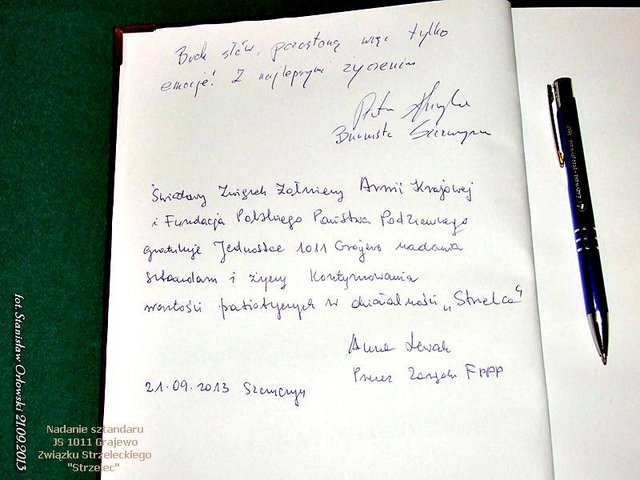 Brak słów, pozostaną więc tylko
emocje! Z najlepszymi życzeniami
Burmistrz Szczuczyna
Światowy Związek Żołnierzy Armii Krajowej
i Fundacja Polskiego Państwa Podziemnego
gratuluje Jednostce 1011 Grajewo nadania
sztandaru i życzy kontynuowania
wartości patriotycznych w działalności „Strzelca"
Anna
Prezes Zarządu FPPP
21.09.2013 Szczuczyn
fot. Stanisław Orłowski 21.09.2013
Nadanie sztandaru
JS 1011 Grajewo
Związku Strzeleckiego
"Strzelec"